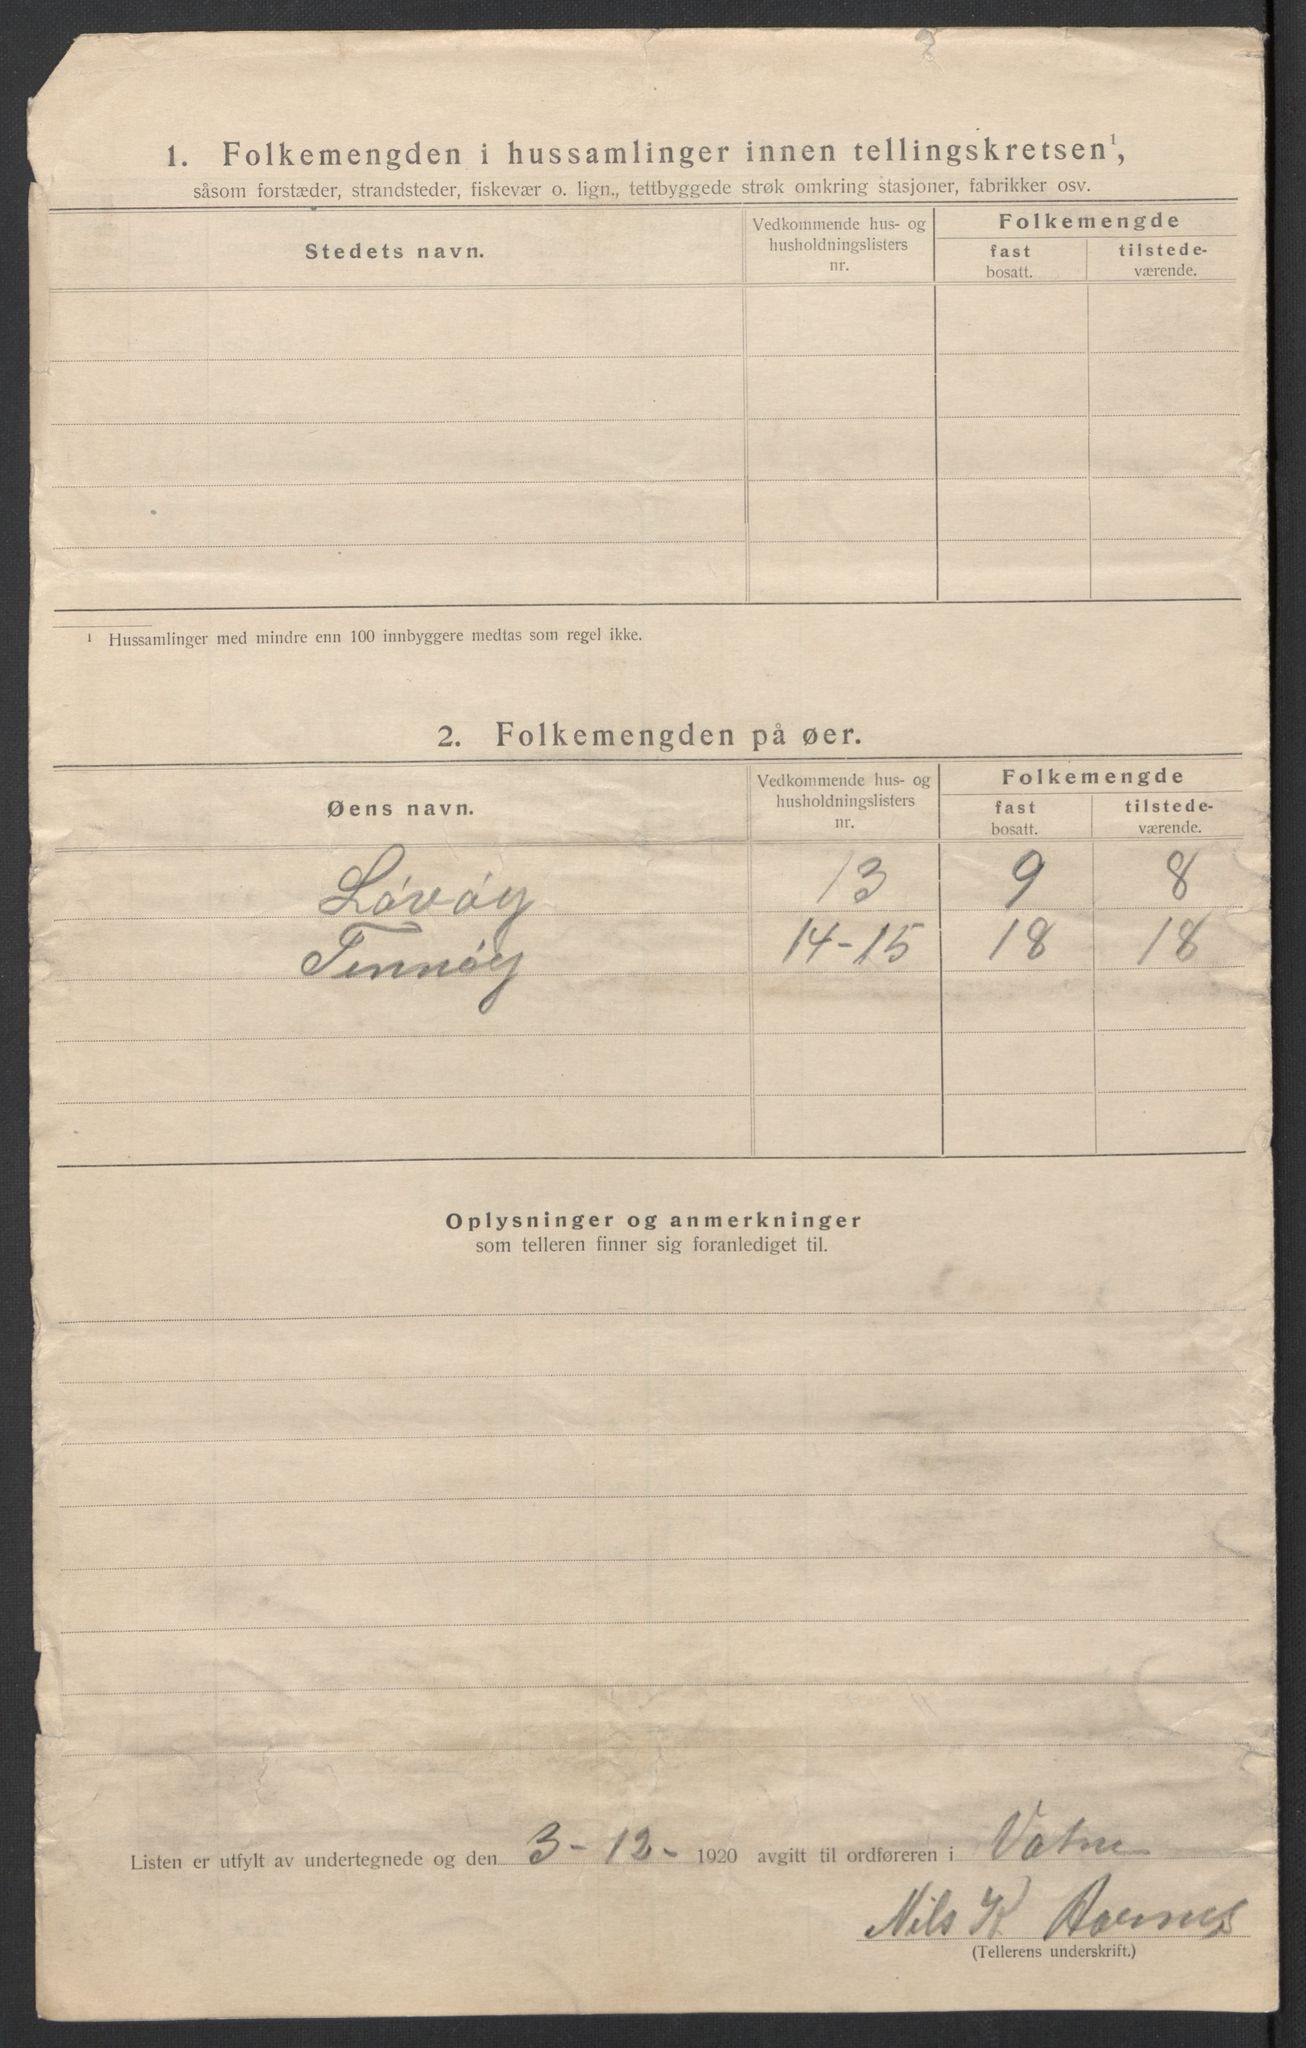 1. Folkemengden i hussamlinger innen tellingskretsen¹,
såsom forstæder, strandsteder, fiskevær o. lign., tettbyggede strøk omkring stasjoner, fabrikker osv.
Stedets navn.
Vedkommende hus- og
husholdningslisters
nr.
Folkemengde
fast
bosatt.
tilstede-
værende.
¹ Hussamlinger med mindre enn 100 innbyggere medtas som regel ikke.
2. Folkemengden på øer.
Øens navn.
Vedkommende hus- og
husholdningslisters
nr.
Folkemengde
fast
bosatt.
tilstede-
værende.
Lóvóy 13 9 8
Tennóy 14-15 18 18
Oplysninger og anmerkninger
som telleren finner sig foranlediget til.
Listen er utfylt av undertegnede og den 3-12- 1920 avgitt til ordføreren i Vatne
Nils K
(Tellerens underskrift.)